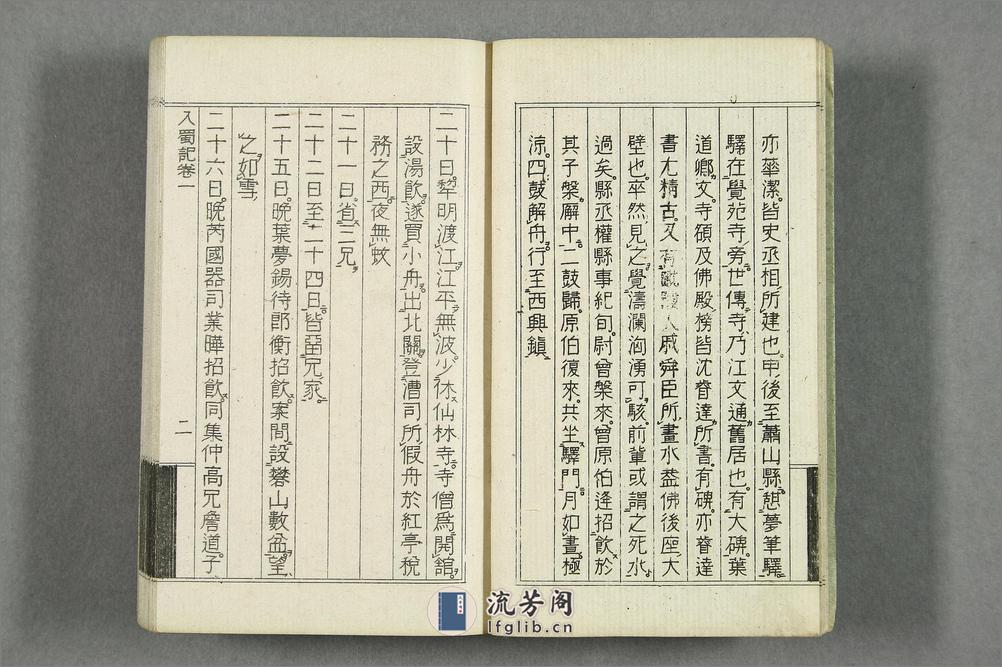 亦華潔。皆史丞相所建也。申後至蕭山縣憇夢筆驛
驛在覺苑寺旁。世傳寺乃江文通舊居也。有大碑。葉
道鄕文。寺額及佛殿榜皆沈睿達所書。有碑。亦睿達
書。尤精古。又有人戚舜臣所畫水。葢佛後座大
壁也。卒然見之。覺濤瀾洶湧可駭。前輩或謂之死水。
過矣。縣丞權縣事紀旬。尉曾槃來。曾原伯逢招飮於
其子槃廨中。二鼓歸。原伯復來。共坐驛門。月如晝。極
涼。四鼓解舟。行至西興鎭
二十日。犂明渡江。江平無波。少休仙林寺。寺僧爲開舘。
設湯飮。遂買小舟。出北關。登漕司所假舟於紅亭稅
務之西。夜無蚊
二十一日。省三兄。
二十二日至二十四日。皆留兄家。
二十五日。晚葉夢錫待郎衡招飮。案間設礬山數盆。望
之如雪
二十六日。晚芮國器司業曄招飮。同集仲高兄詹道子
入蜀記卷一
二
流芳阁
lfglib.cn